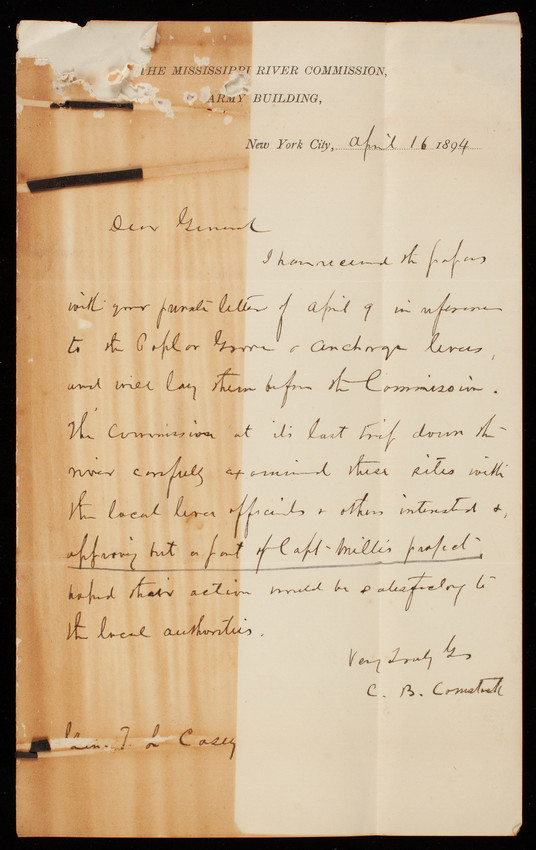 THE MISSISSIPPI RIVER COMMISSION,
ARMY BUILDING,
New York City, April 16 1894
Dear General
I have received the papers
with your private letter of April 9 in reference
to the Poplar Grove & Anchorage levees,
and will lay them before the Commission.
The Commission at its last trip down the
river carefully examined these sites with
the local levee officials & others interested &,
approving but a part of Capt. Millis project
hoped their action would be satisfactory to
the local authorities.
Very truly Yrs
C. B. Comstock
Gen. T. L Casey